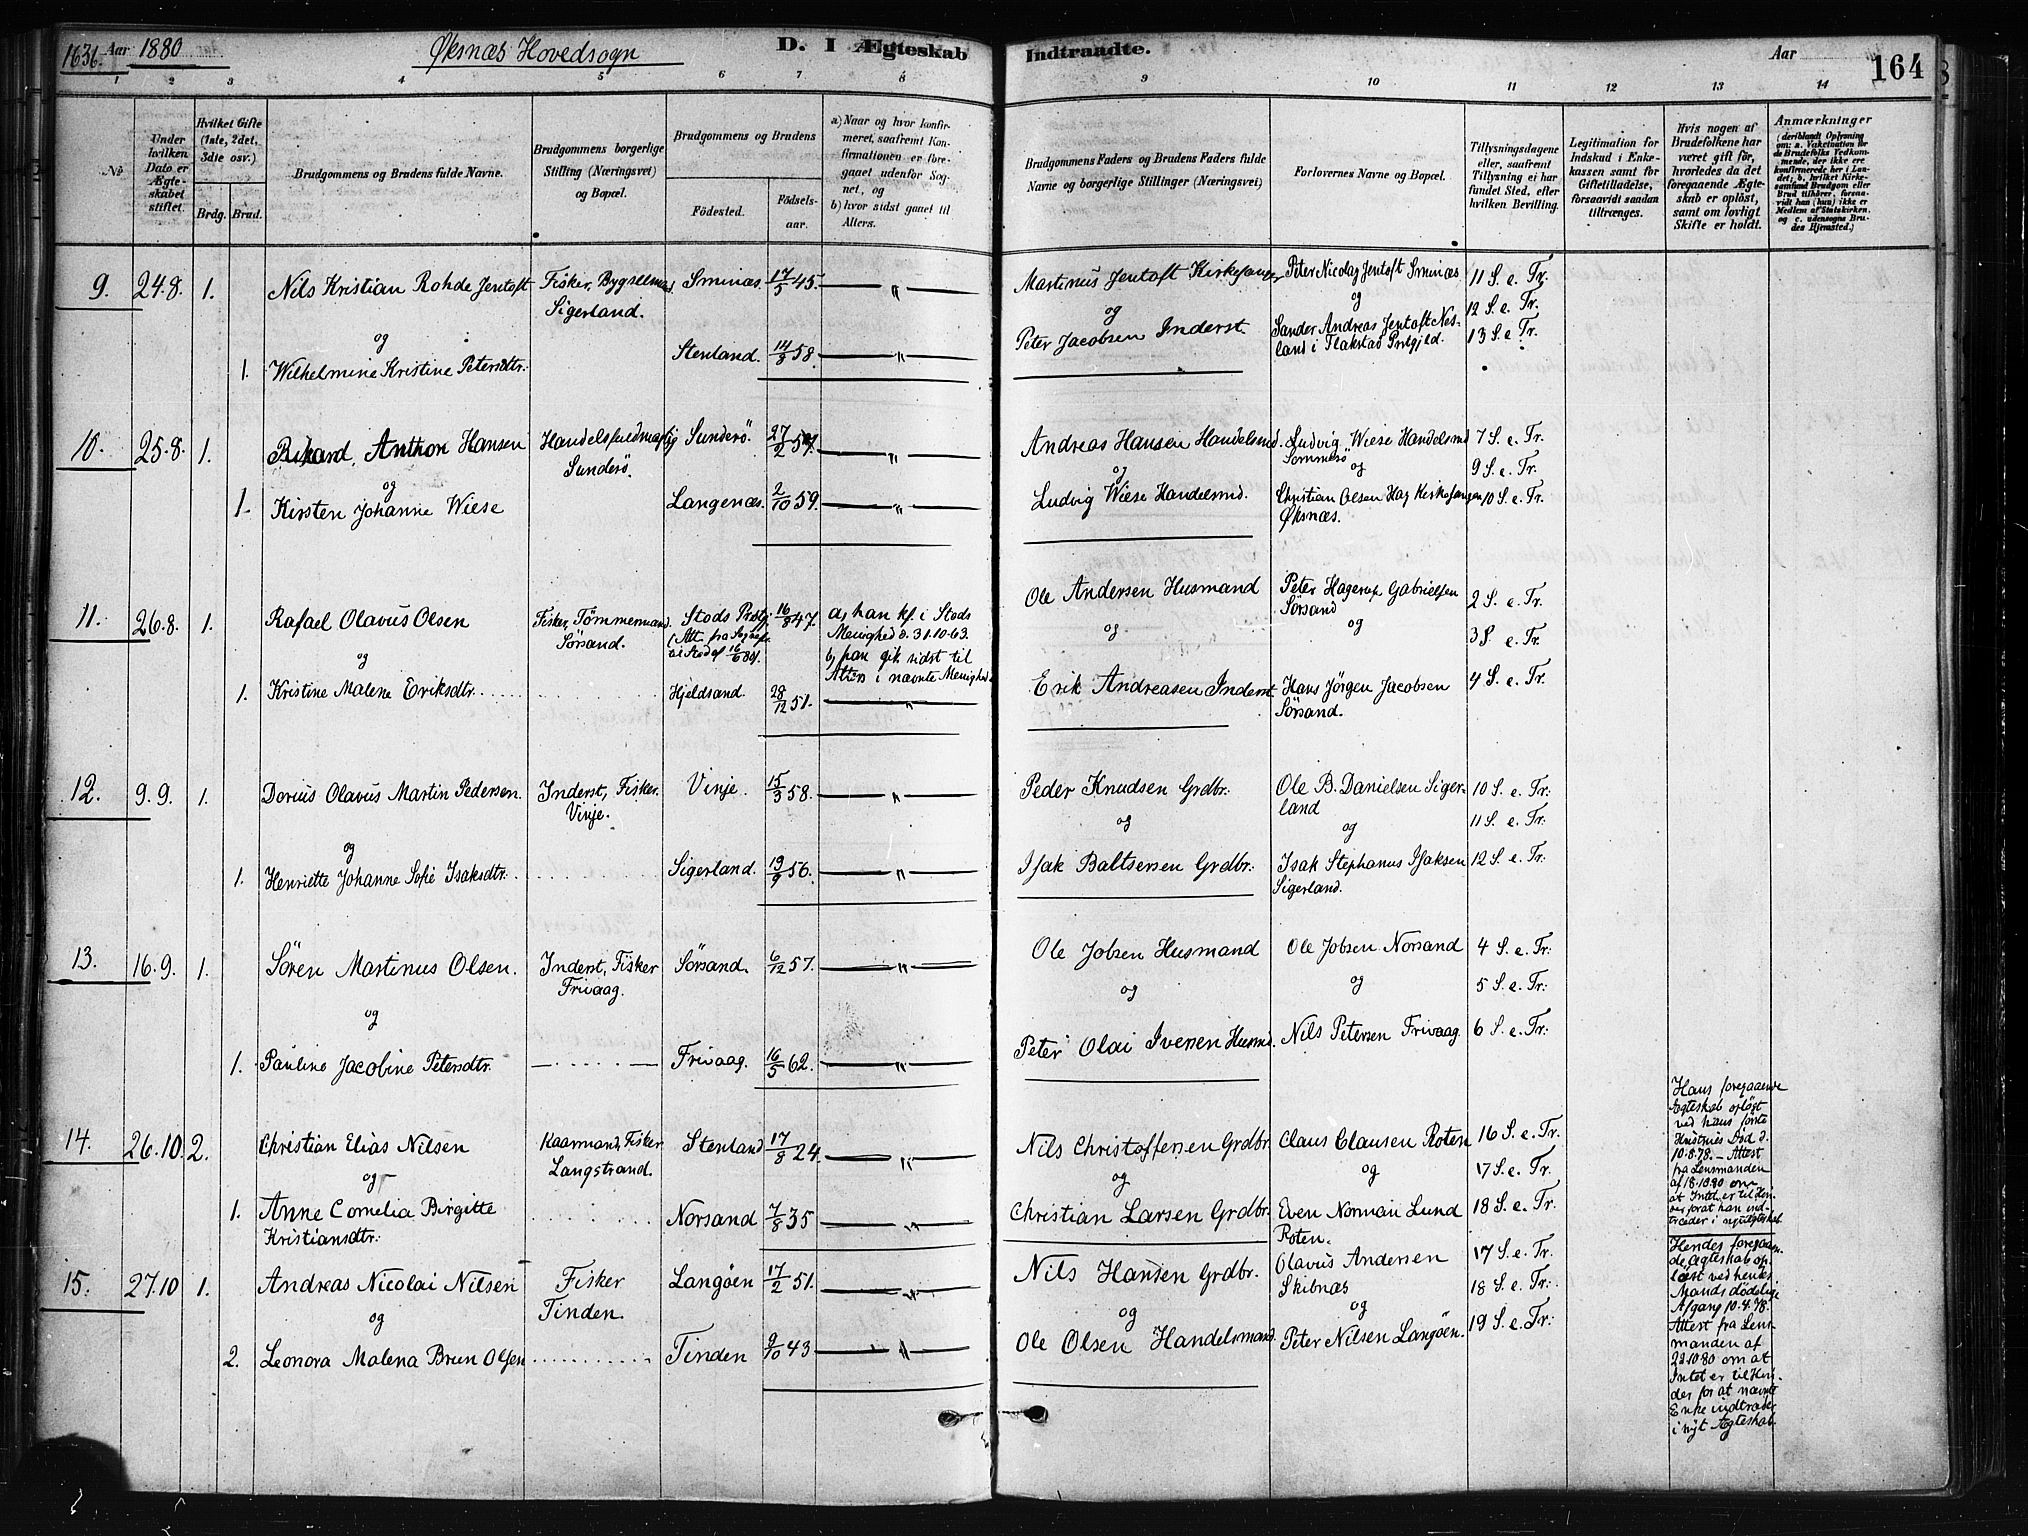 163b. Aar 1880 Øksnæs Hovedsogn D. I Ægteskab Indtraadte. Aar 164
1 2 3 4 5 6 7 8 9 10 11 12 13 14
No
Under hvilken Dato er Ægteskabet stiftet.
Hvilket Gifte (1ste, 2det, 3die osv.)
Brdg. Brud.
Brudgommens og Brudens fulde Navne.
Brudgommens borgerlige Stilling (Næringsvei) og Bopæl.
Brudgommens og Brudens
Fødested.
Fødselsaar.
a) Naar og hvor konfirmeret, saafremt Konfirmationen er foregaaet udenfor Sognet, og
b) hvor sidst gaaet til Alters.
Brudgommens Faders og Brudens Faders fulde Navne og borgerlige Stillinger (Næringsvei)
Forlovernes Navne og Bopæl.
Tillysningsdagene eller, saafremt Tillysning ei har fundet Sted, efter hvilken Bevilling.
Legitimation for Indskud i Enkekassen samt for Giftetilladelse, forsaavidt saadan tiltrænges.
Hvis nogen af Brudefolkene har været gift før, hvorledes da det foregaaende Ægteskab er opløst, samt om lovligt Skifte er holdt.
Anmærkninger
(deriblandt Oplysning om: a. Vakcination for de Brudefolks Vedkommende, der ikke ere konfirmerede her i Landet; b. hvilket Kirkesamfund Brudgom eller Brud tilhører, forsaavidt han (hun) ikke er Medlem af Statskirken, og c. udensogns Brudes Hjemsted.)
9. 24.8. 1. Nils Kristian Rohde Jentoft Fisker, Bygselmand Sminæs. 17/5 45. — " — Martinus Jentoft Kirkesanger Peter Nicolaj Jentoft Sminæs 11 S. e. Tr.
og Sigerland. og og 12 S. e. Tr.
1. Wilhelmine Kristine Petersdtr. Stenland. 14/8 58. — " — Peter Jacobsen Inderst Sander Andreas Jentoft Nesland i Flakstad Prstgjeld. 13 S. e. Tr.
10. 25.8. 1. Rikard Anthon Hansen Handelsfuldmægtig Sunderö. 27/2 57. — " — Andreas Hansen Handelsmd. Ludvig Wiese Handelsmd 7 S. e. Tr.
og Sunderö. og Sommerö og 9 S. e. Tr.
1. Kirsten Johanne Wiese Langenæs. 2/10 59. — " — Ludvig Wiese Handelsmd. Christian Olsen Haj Kirkesanger 10 S. e. Tr.
Øksnæs.
11. 26.8. 1. Rafael Olavus Olsen Fisker, Tömmermand. Stods Prstgj. 16/8 47. a, han kf. i Stods Ole Andersen Husmand Peter Hagerup Gabrielsen 2 S. e. Tr.
Sörsand. (Att. fra Menighed d. 31.10.63. Sörsand
og 16/6 80). b, han gik sidst til og og 3 S e. Tr.
Alters i nævnte Menighed.
1. Kristine Malene Eriksdtr. Hjeldsand. 28/12 51. — " — Erik Andreasen Inderst Hans Jörgen Jacobsen 4 S. e. Tr.
Sörsand.
12. 9.9. 1. Dorius Olavus Martin Pedersen. Inderst, Fisker. Vinje. 15/3 58. — " — Peder Knudsen Grdbr. Ole B. Danielsen Sigerland 10 S. e. Tr.
og Vinje. og og 11 S. e. Tr.
1. Henriette Johanne Sofie Isaksdtr. Sigerland. 19/9 56. — " — Isak Baltsersen Grdbr. Isak Stephanus Isaksen 12 S. e. Tr.
Sigerland.
13. 16.9. 1. Sören Martinus Olsen. Inderst, Fisker Sörsand. 6/12 57. — " — Ole Jobsen Husmand Ole Jobsen Norsand 4 S. e. Tr.
og Frivaag. og og 5 S. e. Tr.
1. Pauline Jacobine Petersdtr. Frivaag. 16/5 62. — " — Peter Olai Iversen Husmd. Nils Petersen Frivaag. 6 S. e. Tr.
14. 26.10. 2. Christian Elias Nilsen Kaarmand, Fisker Stenland 17/8 24. — " — Nils Christoffersen Grdbr. Claus Clausen Roten 16 S. e. Tr.
og Langstrand. og og 17 S. e. Tr.
1. Anne Cornelia Birgitte Norsand 7/8 35 — " — Christian Larsen Grdbr. Even Normari Lund 18 S. e. Tr.
Kristiansdtr. Roten.
Hans foregaaende
Ægteskab opløst
ved hans første
Hustrues Død d.
10.8.78. - Attest
fra Lensmanden
af 18.10.80 om
at Intet er til Hinder forat han indtræder i nyt Ægteskab.
15. 27.10 1. Andreas Nicolai Nilsen Fisker Langöen 17/2 51. — " — Nils Hansen Grdbr. Olavus Andersen 17 S. e. Tr.
og Tinden. og Skibnæs og 18 S. e. Tr.
2. Leonora Malena Brun Olsen Tinden 9/10 43 — " — Ole Olsen Handelsmand. Peter Nilsen Langöen. 19 S. e. Tr.
Hendes foregaaende Ægteskab opløst ved hendes
Mands dødelige
Afgang 10.4.78.
Attest fra Lensmanden af
22.10.80 om at
Intet er til Hinder for at nævnte
Enke indtræder
i nyt Ægteskab